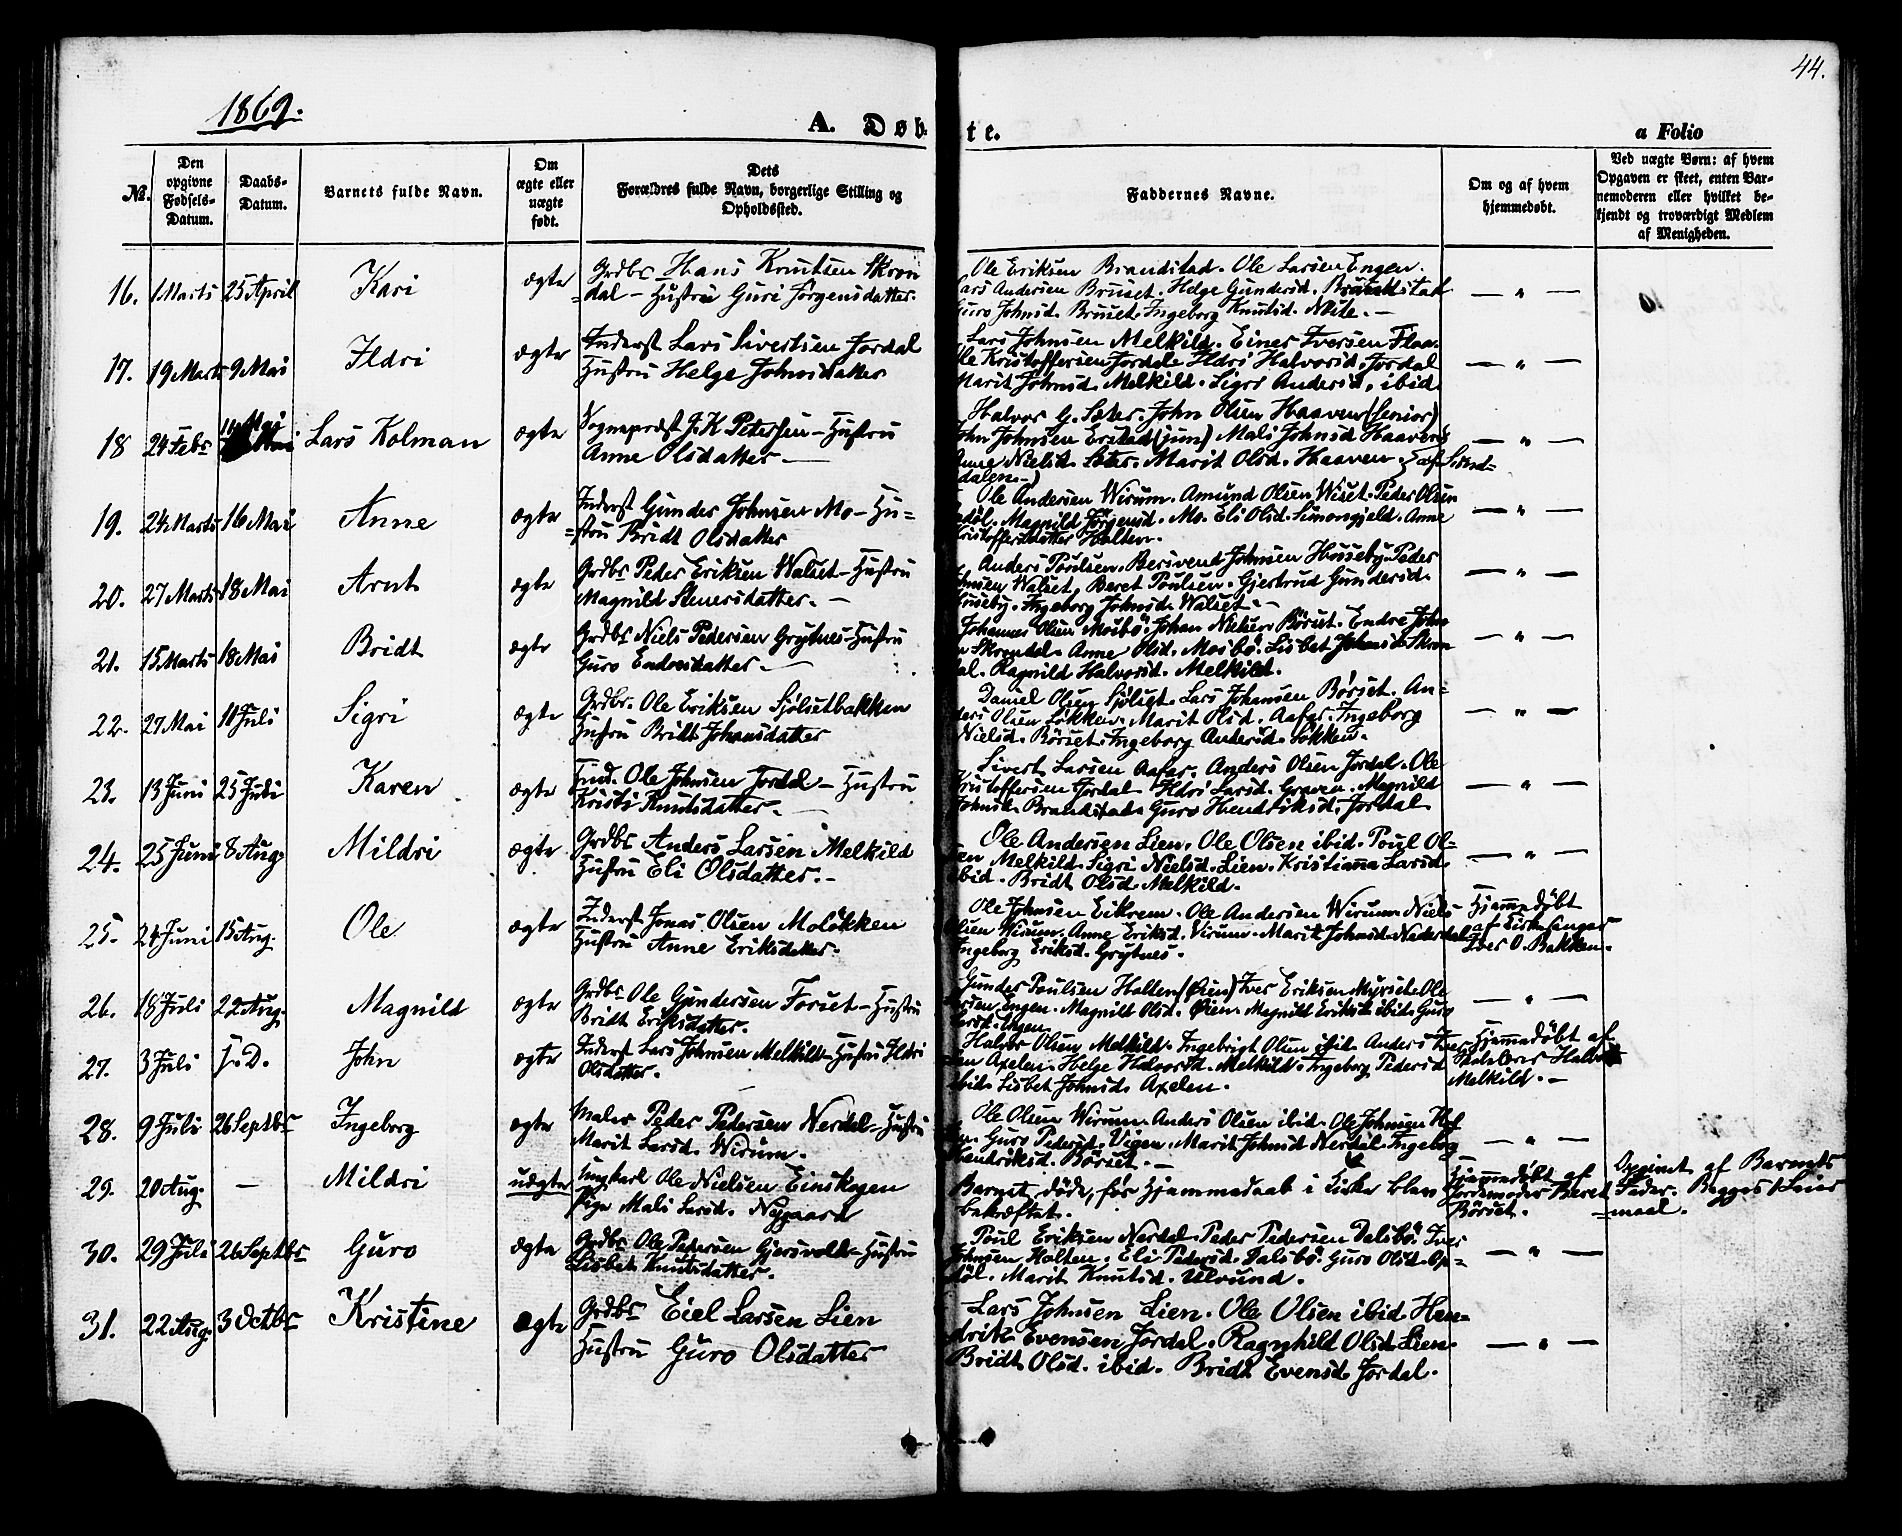 44.
1869.
A. Døb-
te.
a Folio
No.
Den opgivne Fødsels-Datum.
Daabs-Datum.
Barnets fulde Navn.
Om ægte eller uægte født.
Dets Forældres fulde Navn, borgerlige Stilling og Opholdssted.
Faddernes Navne.
Om og af hvem hjemmedøbt.
Ved uægte Børn: af hvem Opgaven er skeet, enten Barnemoderen eller hvilket bekjendt og troværdigt Medlem af Menigheden.
16. 1 Marts 25 April Kari ægte Grdbr Hans Knutsen Skron
dal – Hustru Guri Jørgensdatter.
Ole Eriksen Brandstad. Ole Larsen Engen.
Lars Andersen Bruset. Helge Gundersd. Brandstad
Guro Johnsd. Bruset. Ingeborg Knutsd. — — " —
17. 19 Marts 9 Mai Ildri ægte Inderst Lars Sivertsen Jordal
Hustru Helge Johnsdatter
Lars Johnsen Melkild. Einer Iversen Flaa.
Ole Kristoffersen Jordal. Ildri Halvorsd. Jordal
Marit Johnsd. Melkild. Sigri Andersd. ibid. — " —
18 24 Febr Mai Lars Kolman ægte Sognepræst J. K. Petersen – Hustru
Anne Olsdatter —
Halvor G. Sæter. John Olsen Haaven (senior)
John Johnsen (jun) Mali Johnsd Haaven
Anne Nielsd. Sæter. Marit Olsd. Haaven. — " —
19. 24 Marts 16 Mai Anne ægte Inderst Gunder Johnsen Mo – Hu=
=stru Bridt Olsdatter
Ole Andersen Wirum. Amund Olsen Wiset. Peder Olsen
Magnild Jørgensd. Mo. Eli Olsd. Simongjeld. Anne
Kristoffersdatter Halten. — " —
20. 27 Marts 18 Mai Arnt ægte Grdbr Peder Eriksen Walset – Hustru
Magnild Steuersdatter. —
Anders Poulsen. Johnsen Huseby. Peder
Johnsen Walset. Beret Poulsen. Gjertrud Gundersd.
Huseby. Ingeborg Johnsd. Walset. — — " —
21. 15 Marts 18 Mai Bridt ægte Grdbr Niels Pedersen Grytnes – Hustru
Guro Endresdatter. —
Johannes Olsen Mosbø. Johan Nielsen Børset. Endre John
Skrondal. Anne Olsd. Mosbø. Lisbet Johnsd. Skron
dal. Ragnild Halvorsd. Melkild. — " —
22. 27 Mai 11 Juli Sigri ægte Grdbr. Ole Eriksen Sjølsetbakken
Hustru Bridt Johansdatter
Daniel Olsen Sjølset. Lars Johansen Børset. An=
ders Olsen Løkken. Marit Olsd. Aafar. Ingeborg
Nielsd. Børset. Ingeborg Andersd. Løkken. — " —
23. 13 Juni 25 Juli Karen ægte Ind. Ole Johnsen Jordal – Hustru
Kristi Knutsdatter. —
Sivert Larsen Aafar. Anders Olsen Jordal. Ole
Kristoffersen Jordal Ildri Larsd. Graven. Magnild
Johnsd. Brandstad. Guro Hendriksd. Jordal — " —
24. 25 Juni 8 Aug. Mildri ægte Grdbr Anders Larsen Melkild
Hustru Eli Olsdatter. —
Ole Andersen Lien. Ole Olsen ibid. Poul Ol=
sen Melkild. Sigri Nielsd. Lien. Kristiana Larsd.
ibid. Bridt Olsd. Melkild. — " —
25. 24 Juni 15 Aug. Ole ægte Inderst Jonas Olsen Moløkken
Hustru Anne Eriksdatter.
Ole Johnsen Eikrem. Ole Andersen Wirum. Niels
Olsen Wirum. Anne Eriksd. Wirum. Marit Johnsd. Naderdal
Ingeborg Eriksd. Grytnes.
Hjemmedøbt
af Kirkesanger
Iver O. Bakken.
26. 18 Juli 22 Aug. Magnild ægte Grdbr Ole Gundersen Forset – Hustru
Bridt Eriksdatter.
Gunder Poulsen Halten (Øien) Iver Eriksen Myrset. Ole
Larsen Engen. Magnild Olsd. Øien. Magnild Eriksd. ibid. Guro
Larsd. Engen — " —
27. 3 Juli s. D. John ægte Inderst Lars Johnsen Melkild – Hustru Ildri
Olsdatter. —
Halvor Olsen Melkild. Ingebrigt Olsen ibid. Anders Iver
sen Axelen. Helge Halvorsd. Melkild. Ingeborg Pedersd
ibid. Lisbet Johnsd. Axelen.
Hjemmedøbt af
Halvor
Melkild. —
28. 9 Juli 26 Septbr Ingeborg ægte Maler Peder Pedersen Nerdal – Hustru
Marit Larsd. Wirum.
Ole Olsen Wirum. Anders Olsen ibid. Ole Johnsen
Guro Pedersd. Vigen. Marit Johnsd Nerdal. Ingeborg
Hendriksd. Børset. — — " —
29. 20 Aug. — Mildri uægte Ungkarl Ole Nielsen Einskagen
Pige Mali Larsd. Nygaard
Barnet døde, før Hjemmedaab i Kirke blev
bekræftet.
Hjemmedøbt af
Jordemoder Beret
Børset.
Opgivet af Barnets
Fader. Begges 1 Leier
=maal.
30. 29 Juli 26 Septbr Guro ægte Grdbr Ole Pedersen Gjersvold – Hustru
Lisbet Knutsdatter.
Poul Eriksen Nerdal. Peder Pedersen Dalsbø. Iver
Johnsen Halten. Eli Pedersd. Dalsbø. Guro Olsd. Op=
døl. Marit Knutsd. Ulvund. — " —
31. 22 Aug. 3 Octbr Kristine ægte Grdbr Eiel Larsen Lien
Hustru Guro Olsdatter
Lars Johnsen Lien. Ole Olsen ibid Hen=
drik Evensen Jordal. Ragnhild Olsd. Lien.
Bridt Olsd. ibid. Bridt Evensd Jordal. — " —